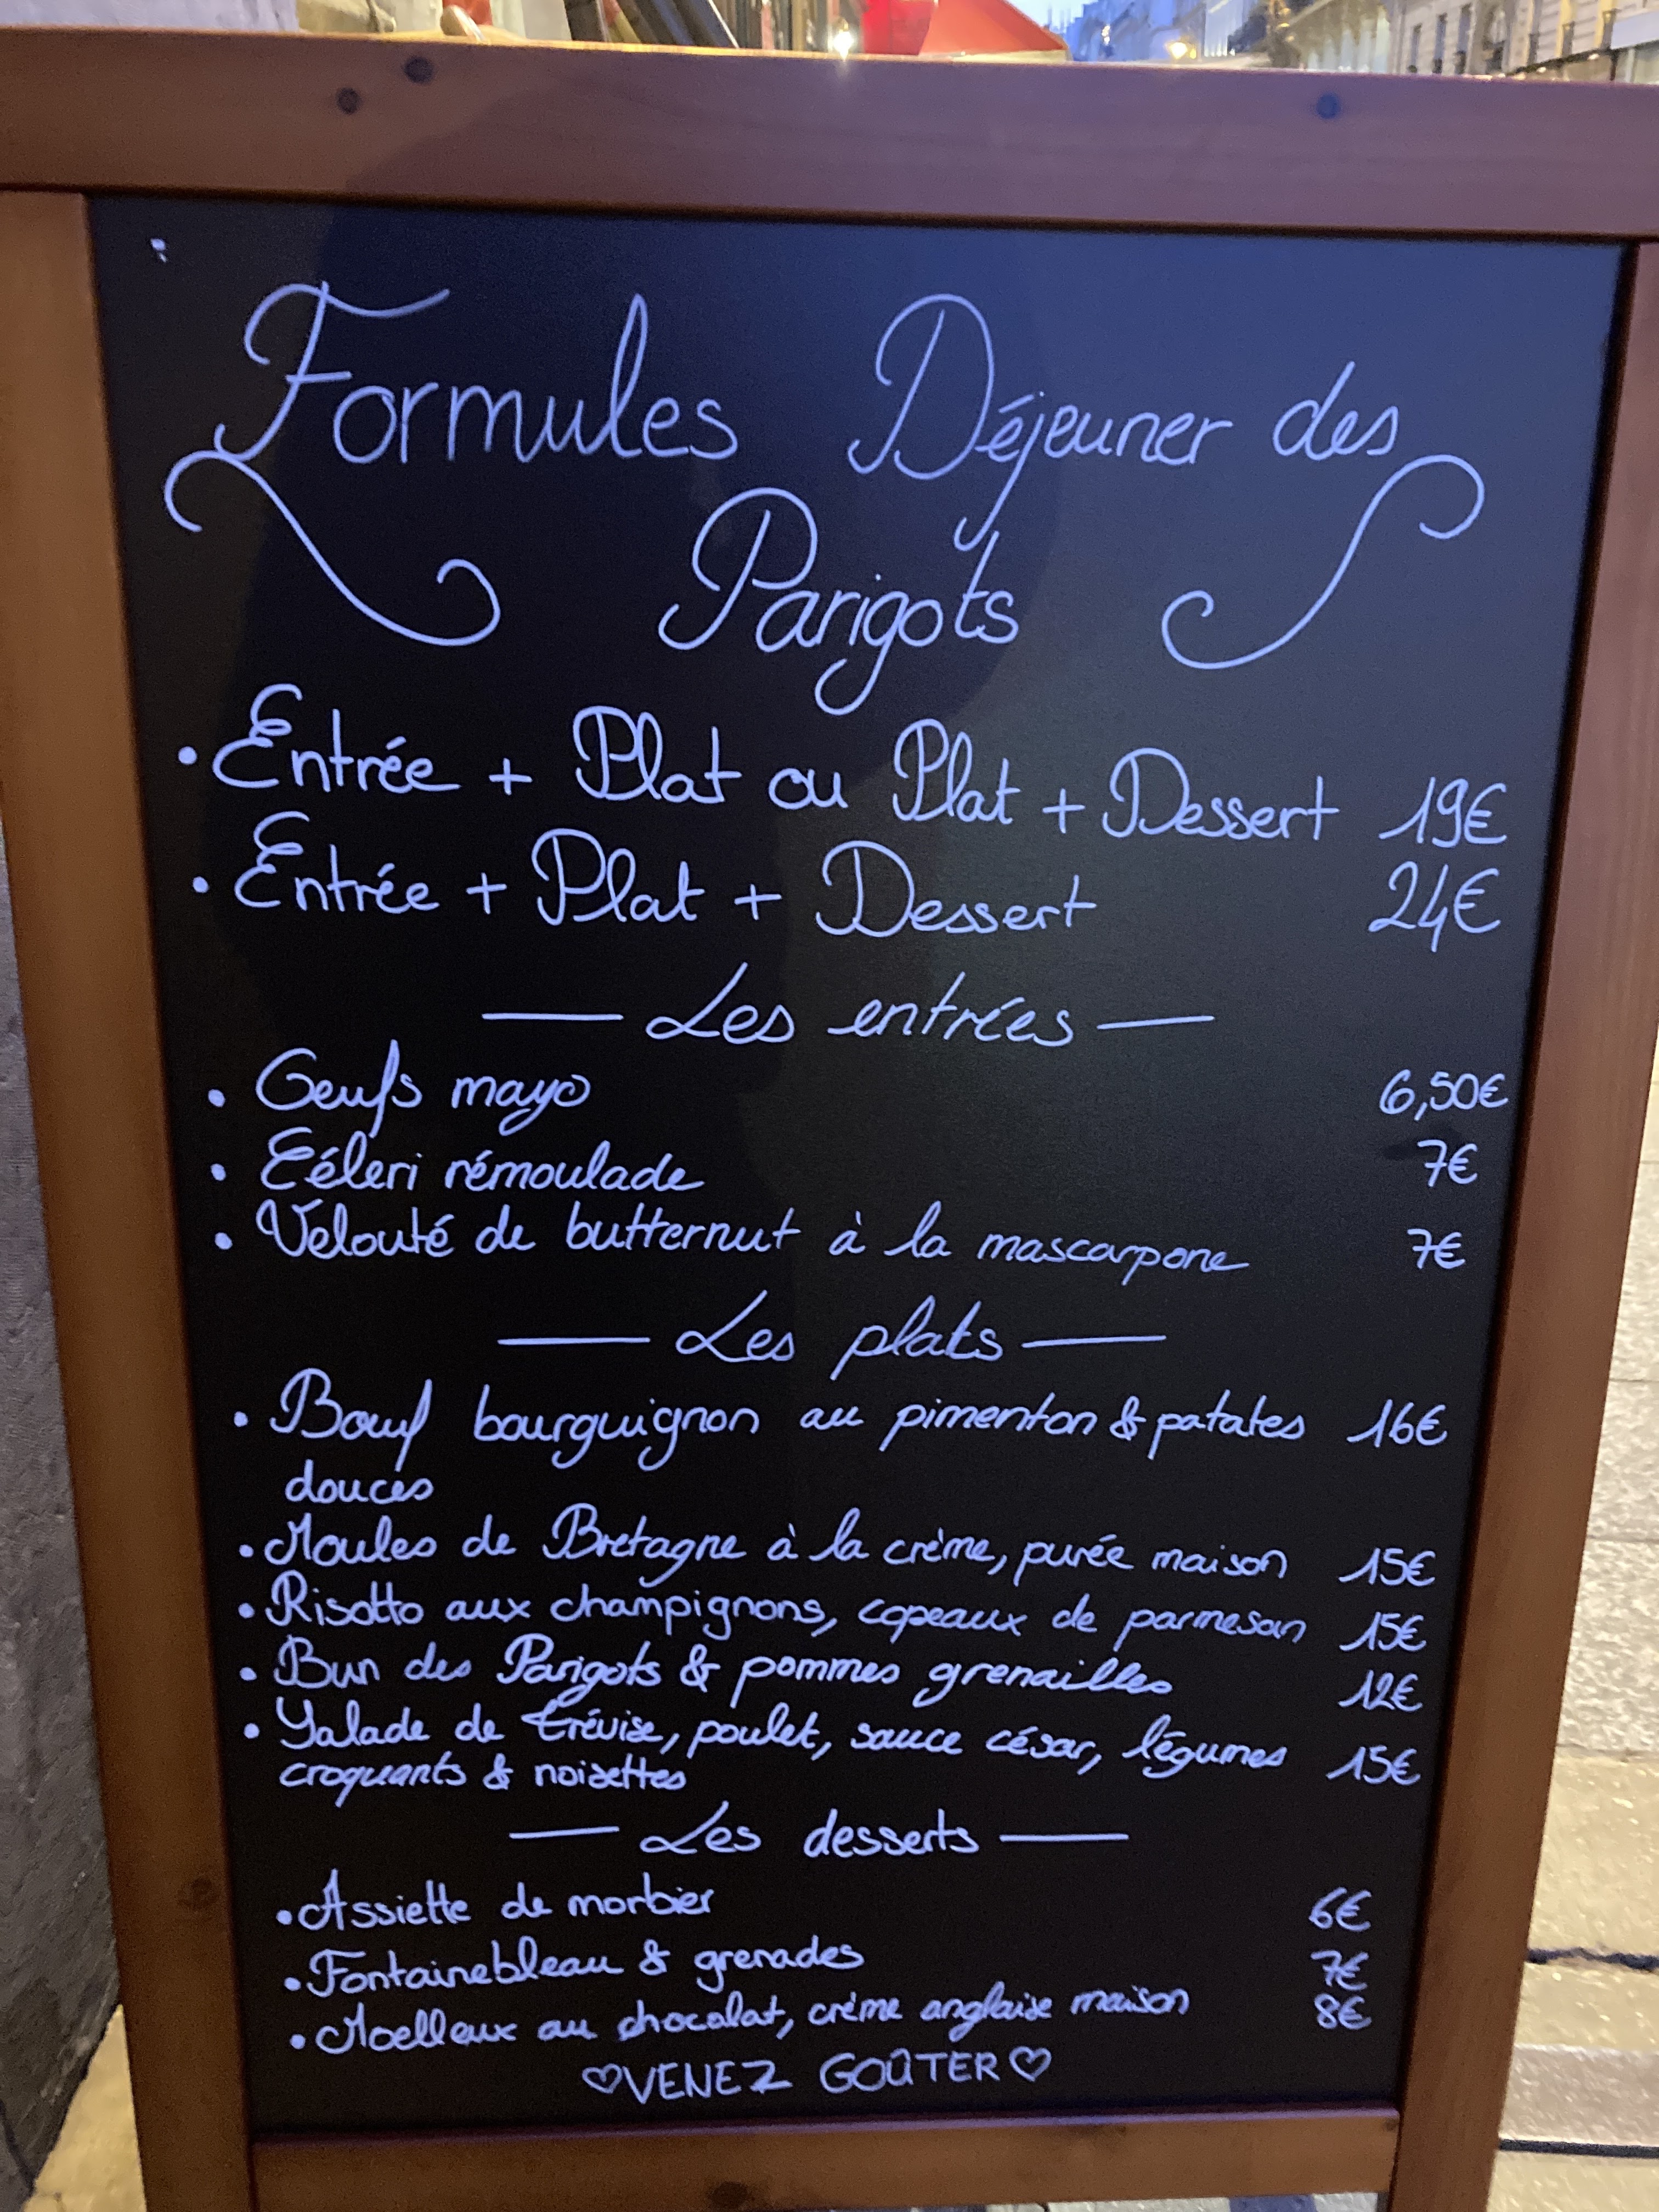 Formules Déjeuner des
Parigots
• Entrée + Plat ou Plat + Dessert 19€
• Entrée + Plat + Dessert 24€
— Les entrées —
• Oeufs mayo 6,50€
• Céleri rémoulade 7€
• Velouté de butternut à la mascarpone 7€
— Les plats —
• Bœuf bourguignon au pimenton & patates 16€
douces
• Moules de Bretagne à la crème, purée maison 15€
• Risotto aux champignons, copeaux de parmesan 15€
• Bun des Parigots & pommes grenailles 12€
• Salade de trévise, poulet, sauce césar, légumes 15€
croquants & noisettes
— Les desserts —
• Assiette de morbier 6€
• Fontainebleau & grenades 7€
• Moelleux au chocolat, crème anglaise maison 8€
♡VENEZ GOÛTER♡